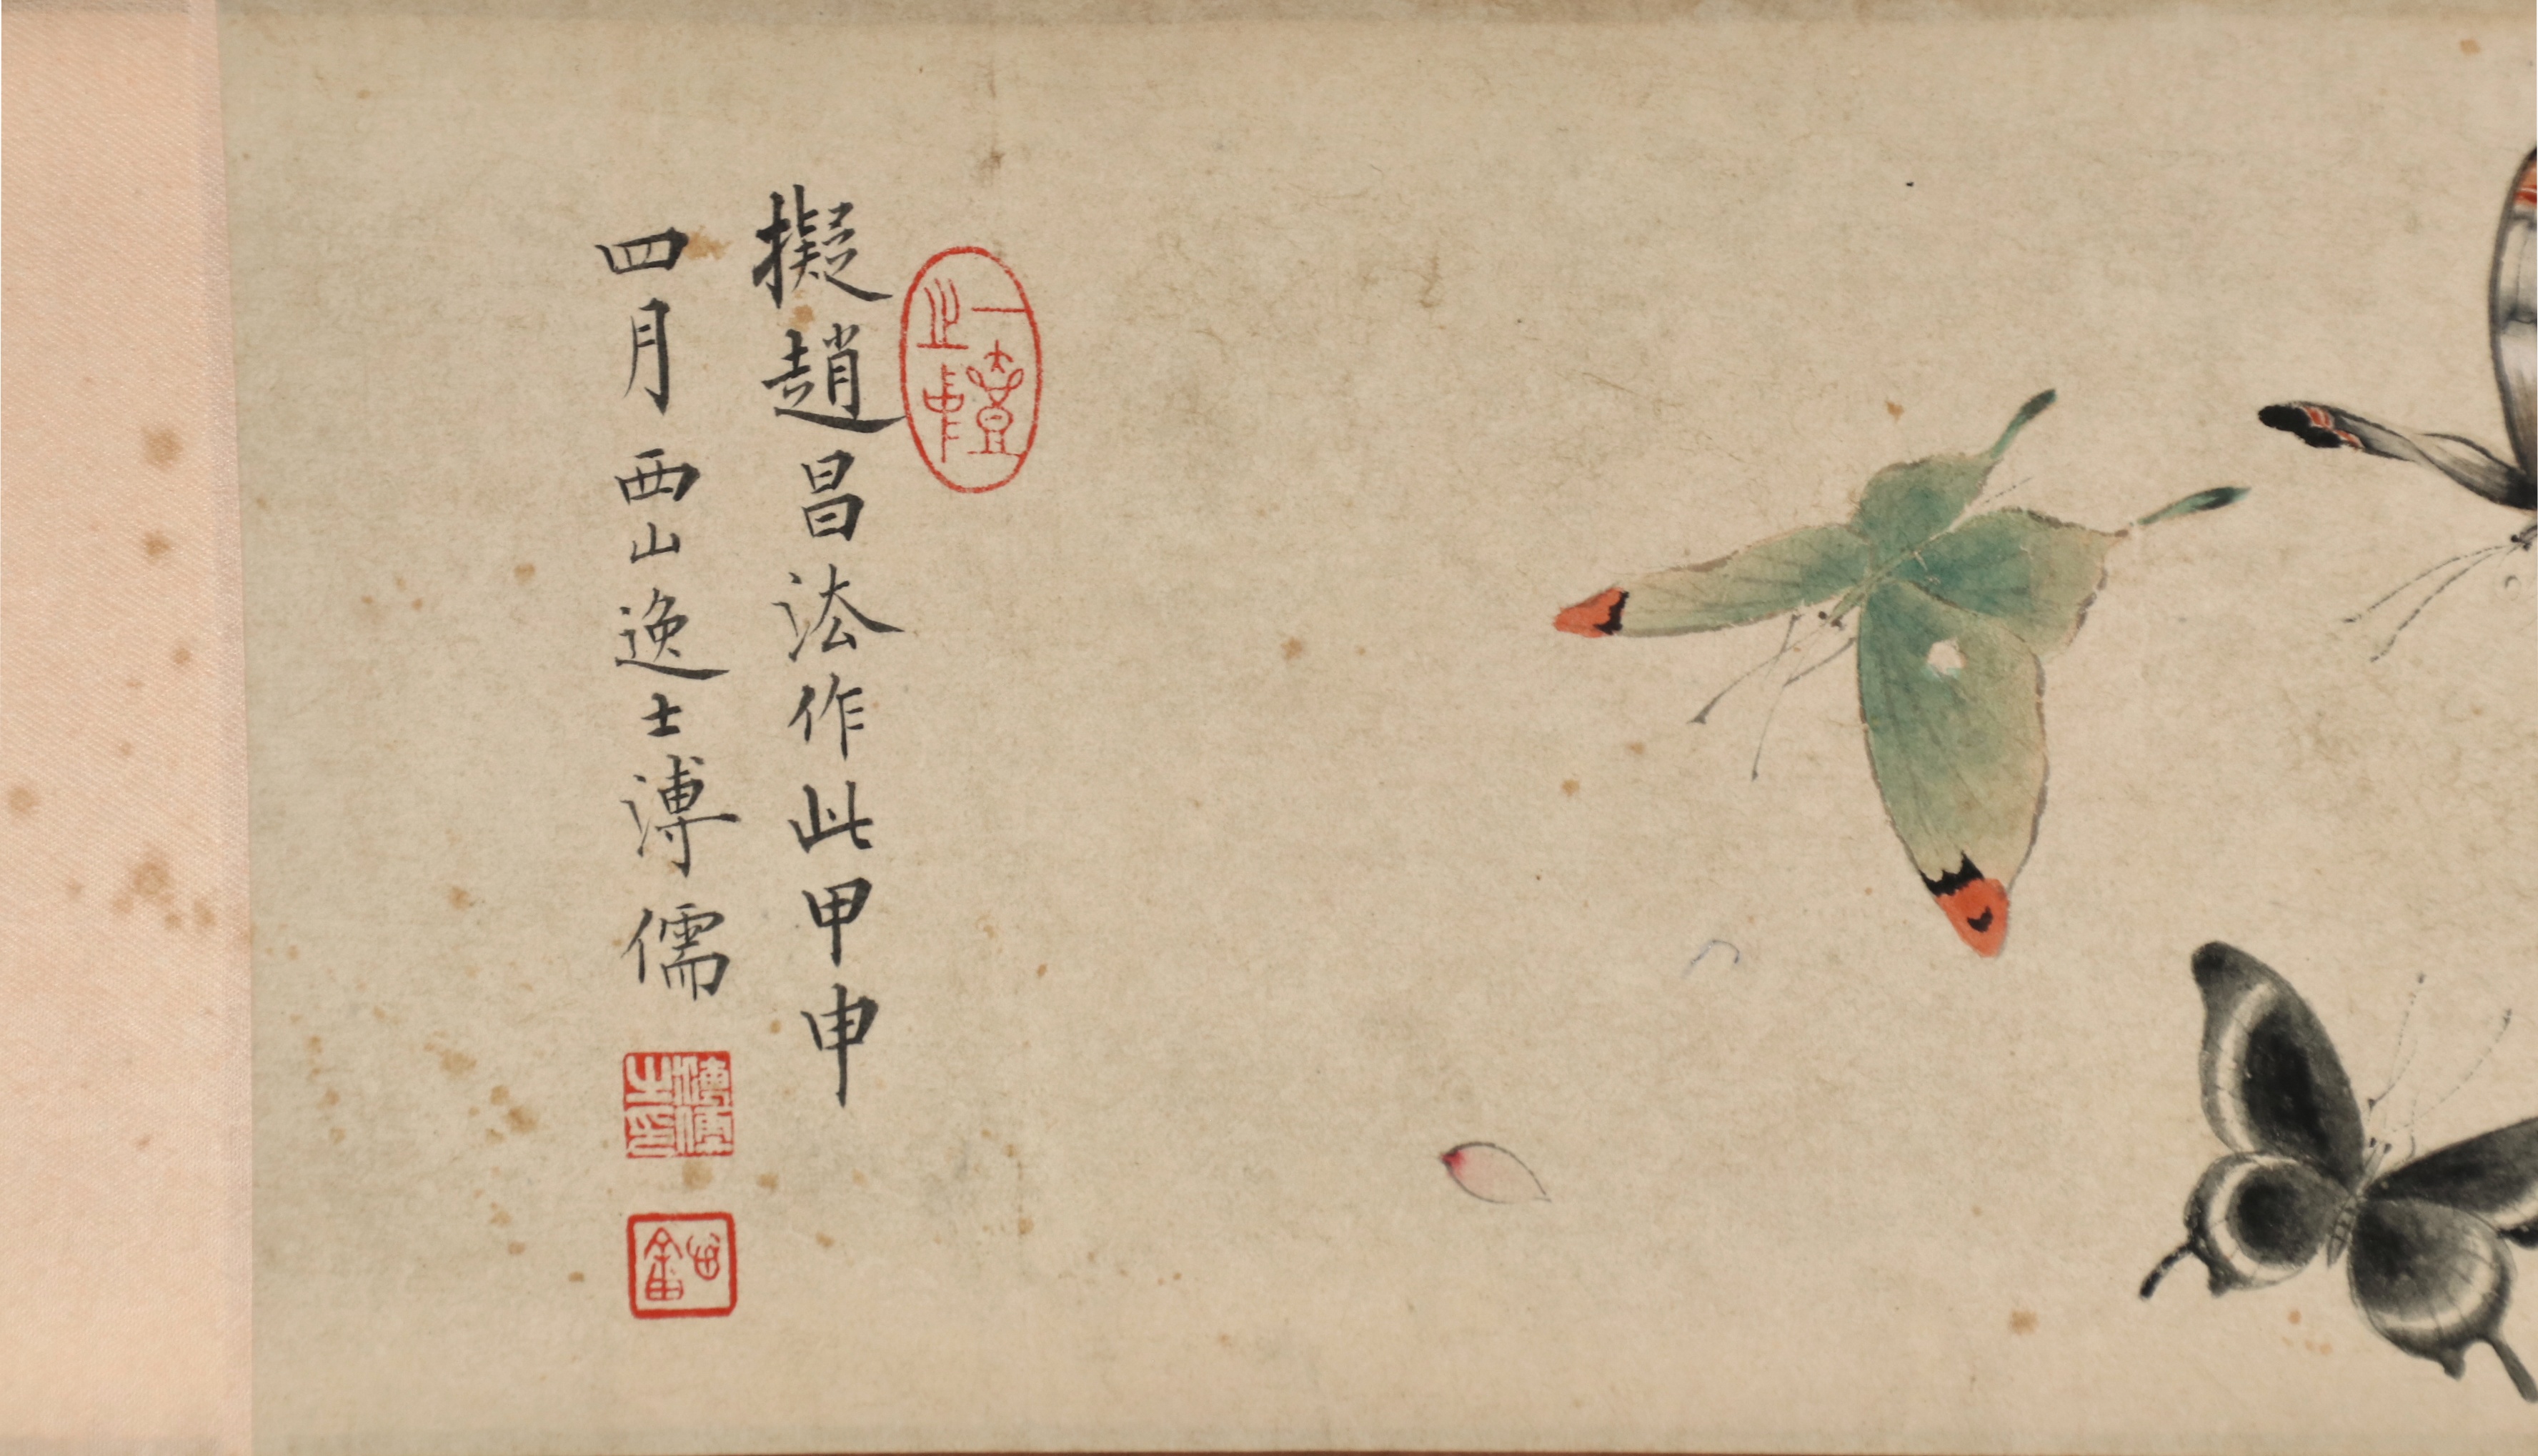 擬趙昌法作此甲申
四月西山逸士溥儒
一壺之中
溥儒之印